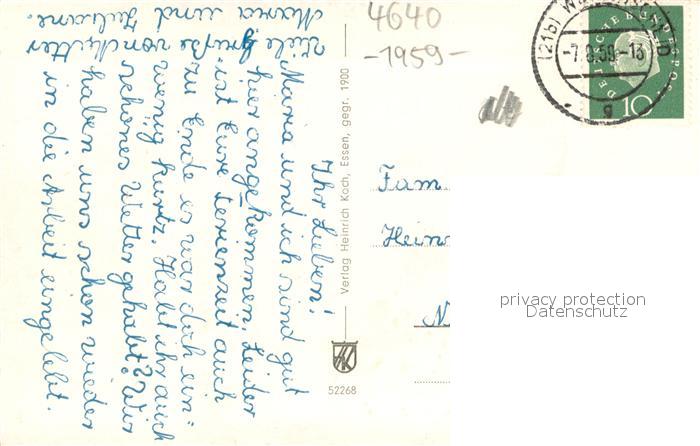 Ihr Lieben!
Maria und ich sind gut
hier angekommen. Leider
ist Eure Ferienzeit auch
zu Ende es war doch ein
wenig kurtz. Habt ihr auch
schönes Wetter gehabt? Wir
haben uns schon wieder
in die Arbeit eingelebt.
Viele Grüße von Mutter
Maria und
4640
-1959-
(21b)
-7.8.59-13
g
DEUTSCHE BUNDESPOST
10
Fam
Hein
N
Verlag Heinrich Koch, Essen, gegr. 1900
52268
privacy protection
Datenschutz